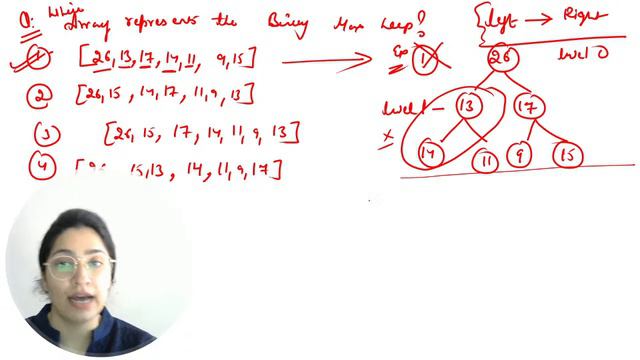 Q: Which Array represents the Binary Max Heap?
① [26, 13, 17, 14, 11, 9, 15]
② [26, 15, 14, 17, 11, 9, 13]
③ [26, 15, 17, 14, 11, 9, 13]
④ [26, 15, 13, 14, 11, 9, 17]
left → Right
Ex ① 26 level 0
level 1 - 13 17
x
14 11 9 15